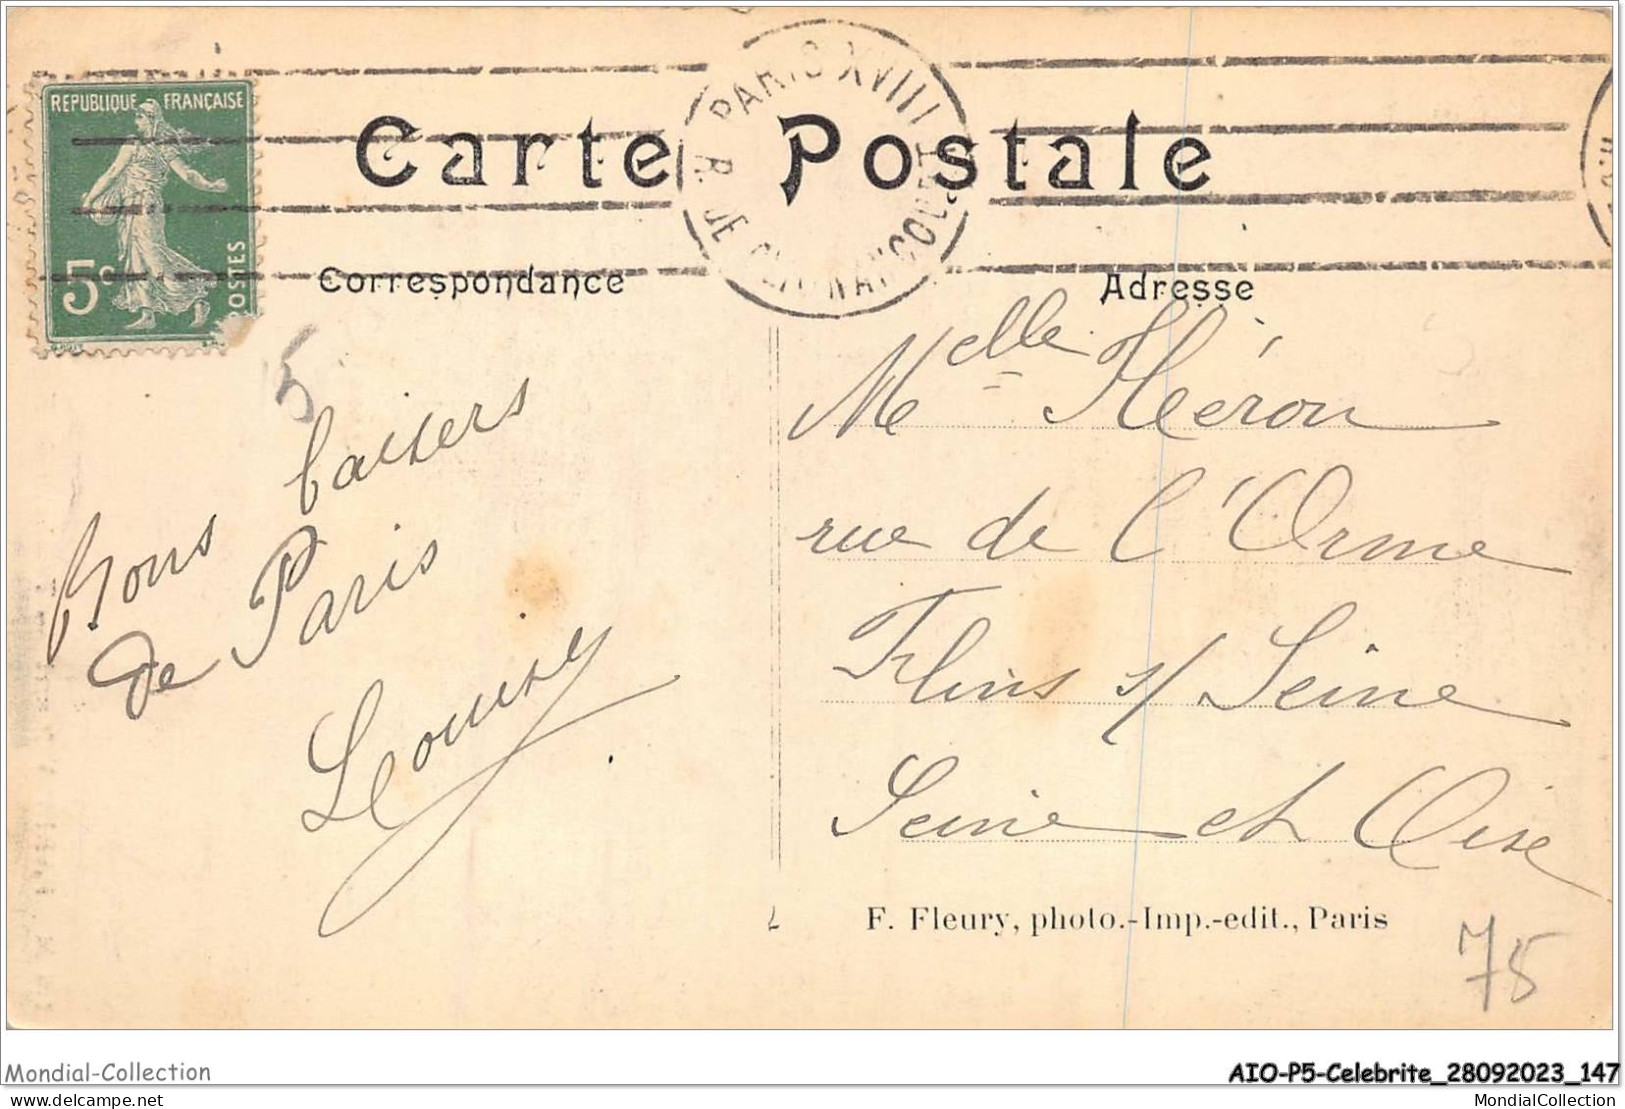 REPUBLIQUE FRANÇAISE
5c
POSTES
PARIS XVIII
Carte Postale
Correspondance
Adresse
5
Bons baisers
de Paris
Melle Héron
rue de l'Orme
Flins s/ Seine
Seine et Oise
F. Fleury, photo.-Imp.-edit., Paris
75
Mondial-Collection
AIO-P5-Celebrite_28092023_147
mondial-collection.net
MondialCollection